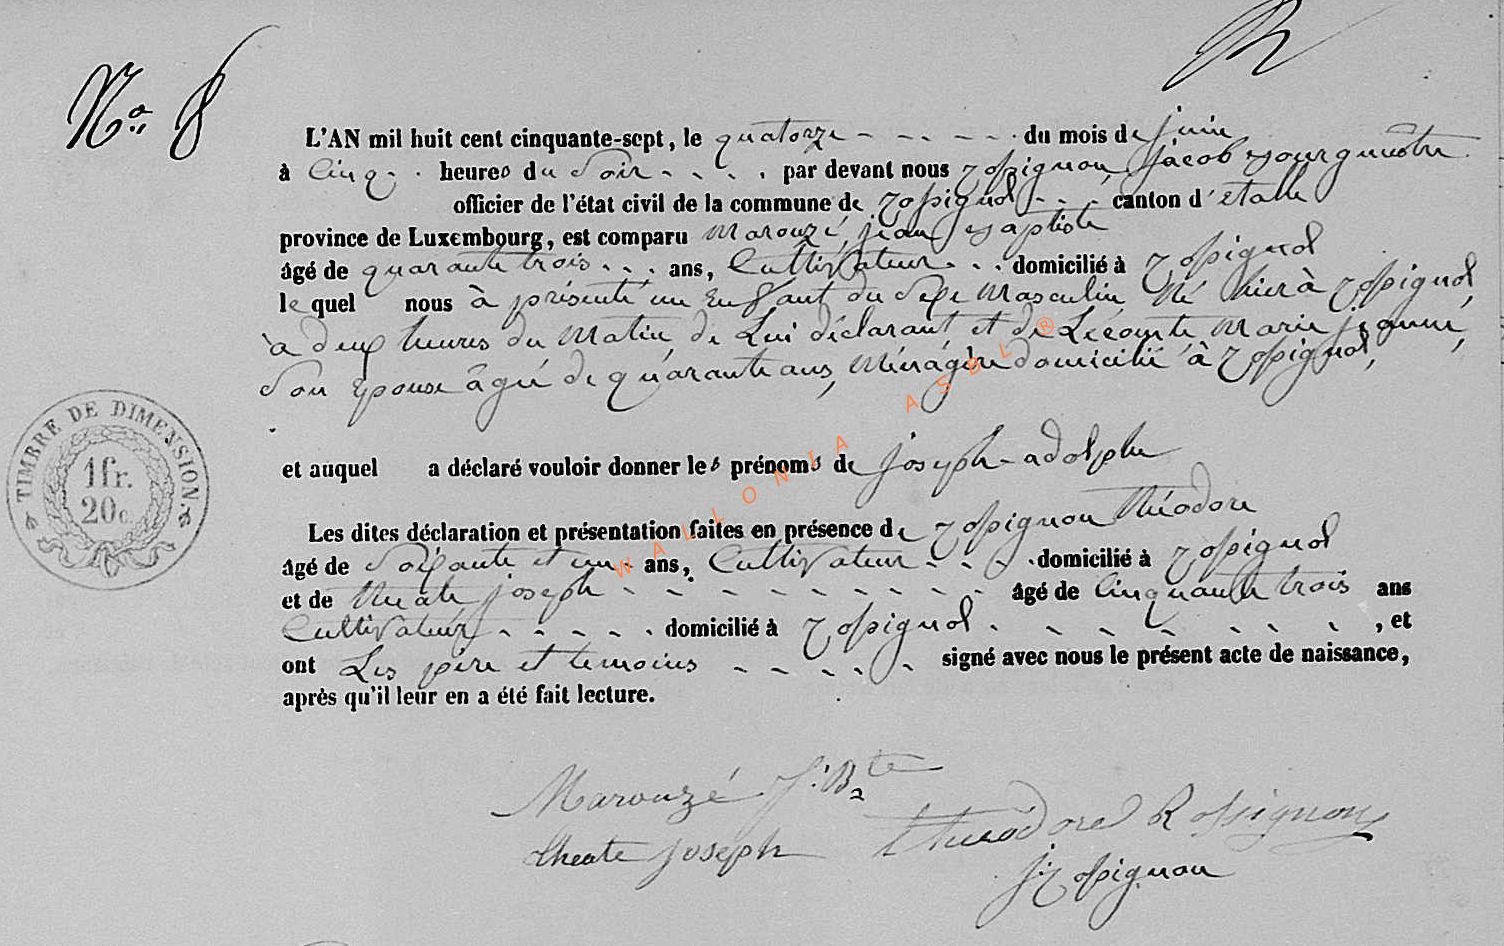 N° 8
L'AN mil huit cent cinquante-sept, le quatorze - - - - - du mois de juin
à cinq heures du Soir - - - - par devant nous rossignon, jacob bourguemestre
officier de l'état civil de la commune de rossignol - - - canton d'étalle
province de Luxembourg, est comparu Marouzé, jean Baptiste
âgé de quarante trois - - - ans, Cultivateur - - - domicilié à rossignol
le quel nous à présenté un Enfant du Sexe Masculin Né hier à rossignol,
à deux heures du Matin de Lui déclarant et de Lécomte Marie jeanne,
Son Epouse âgée de quarante ans, Ménagère domicilié à rossignol,
et auquel a déclaré vouloir donner les prénoms de joseph-adolphe
Les dites déclaration et présentation faites en présence de rossignon théodore
âgé de Soixante et un - ans, Cultivateur - - - - domicilié à rossignol
et de theate joseph - - - - - - - - - âgé de Cinquante trois ans
Cultivateur - - - - - domicilié à rossignol - - - - - - - , et
ont Les père et temoins - - - - - signé avec nous le présent acte de naissance,
après qu'il leur en a été fait lecture.
TIMBRE DE DIMENSION
1 fr.
20 c.
WALLONIA ASBL ®
Marouzé J. Bte
theate joseph
théodore Rossignon
j. rossignon